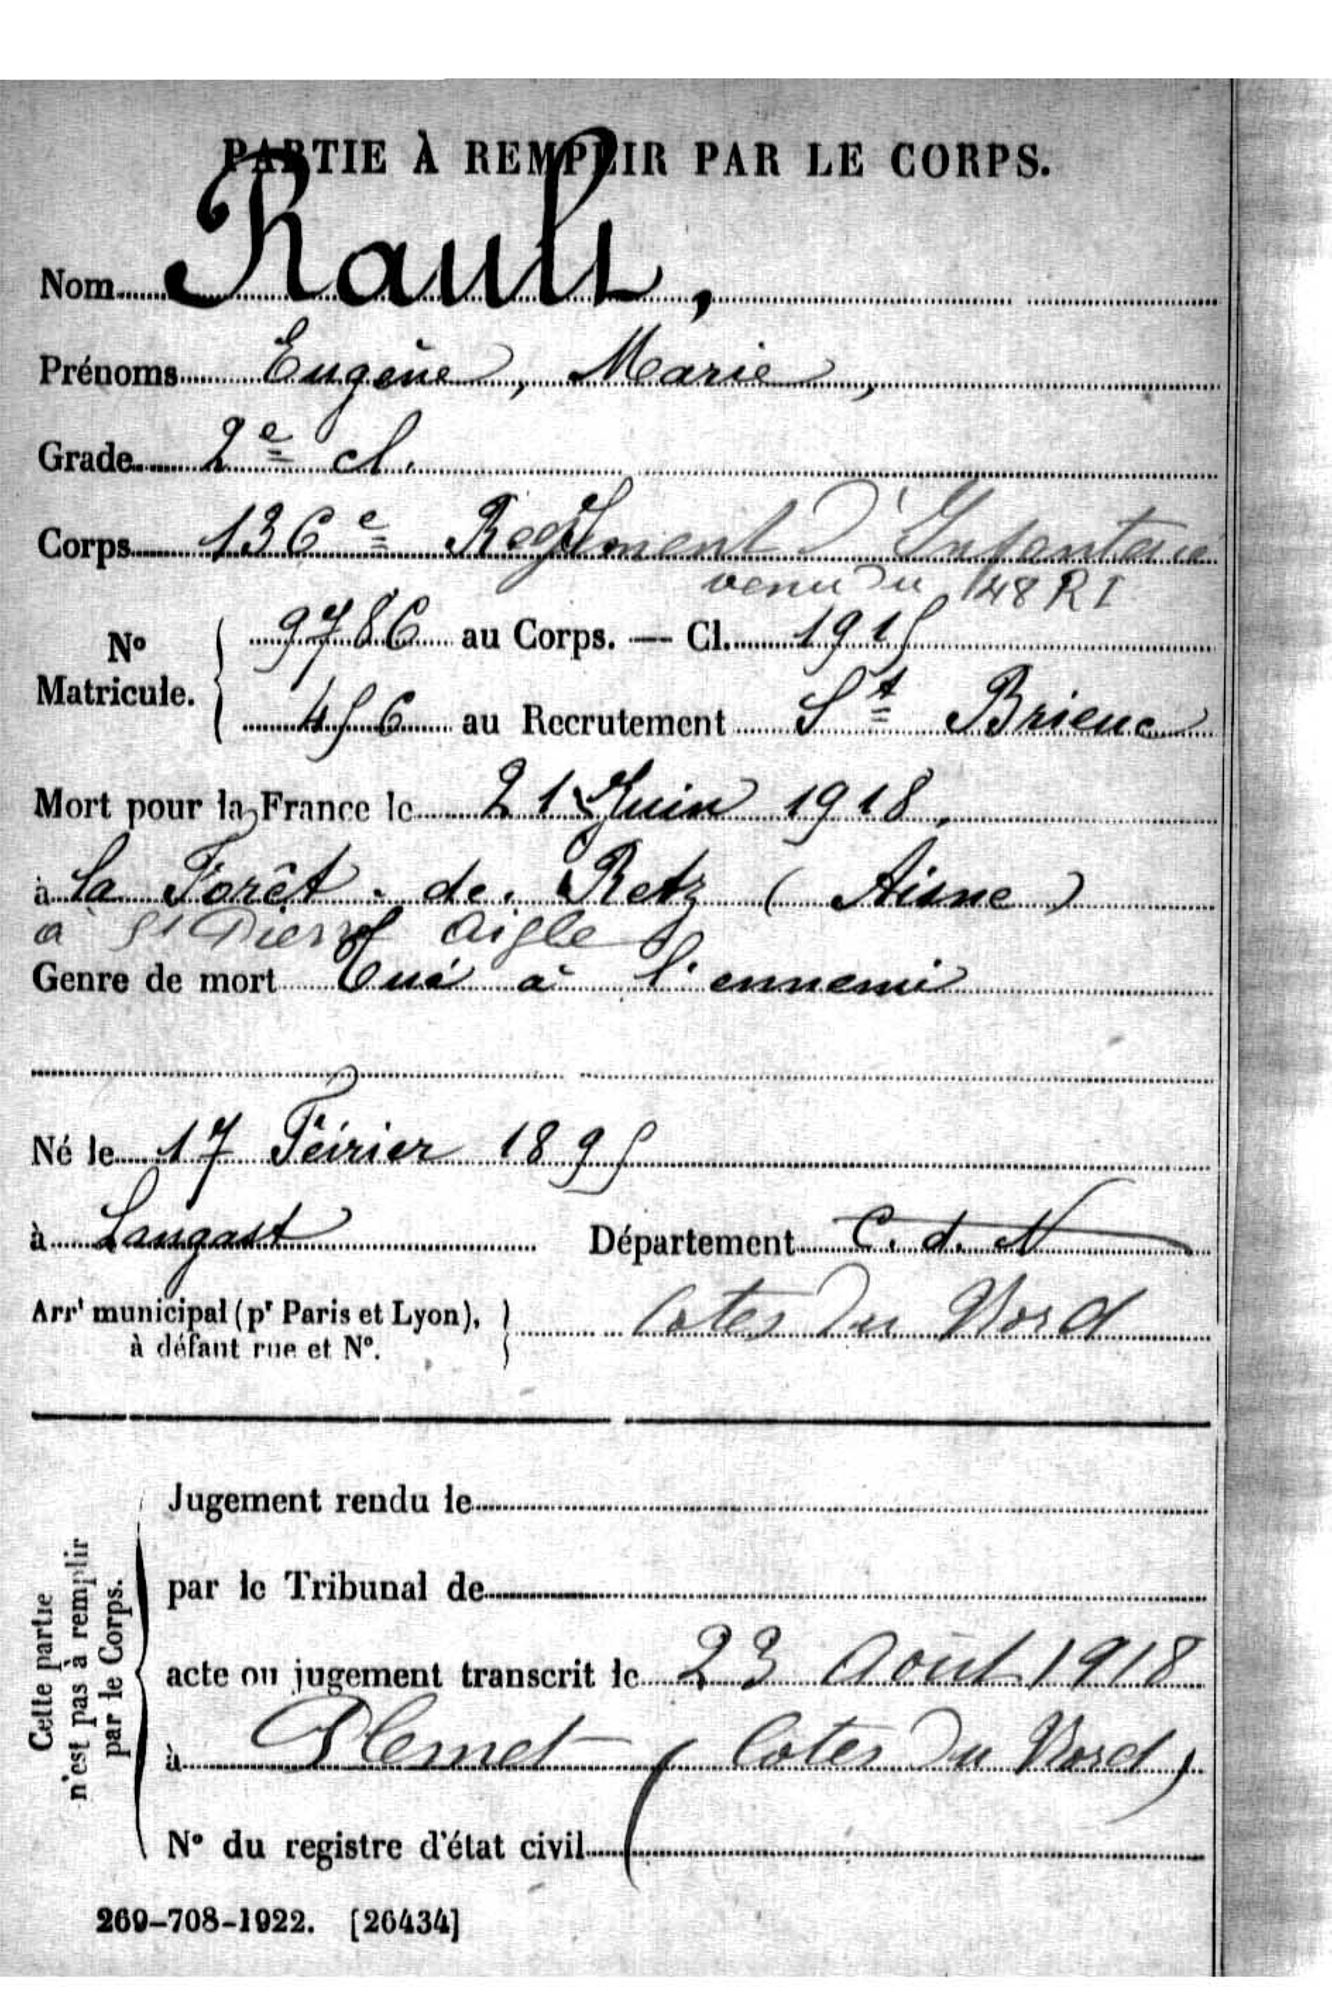 PARTIE À REMPLIR PAR LE CORPS.
Nom Rault,
Prénoms Eugène, Marie,
Grade 2e cl.
Corps 136e Regiment d'Infanterie
venu du 48 RI
No Matricule. { 9786 au Corps. — Cl. 1915
456 au Recrutement St Brieuc
Mort pour la France le 21 Juin 1918,
à la Forêt de Retz (Aisne)
a St Pierre Aigle
Genre de mort Tué à l'ennemi
Né le 17 Février 1895
à Langast Département C. d. N
Arrt municipal (pr Paris et Lyon), } Cotes du Nord
à défaut rue et No.
Cette partie n'est pas à remplir par le Corps.
Jugement rendu le
par le Tribunal de
acte ou jugement transcrit le 23 Août 1918
à Plemet (Cotes du Nord)
No du registre d'état civil
269-708-1922. [26434]